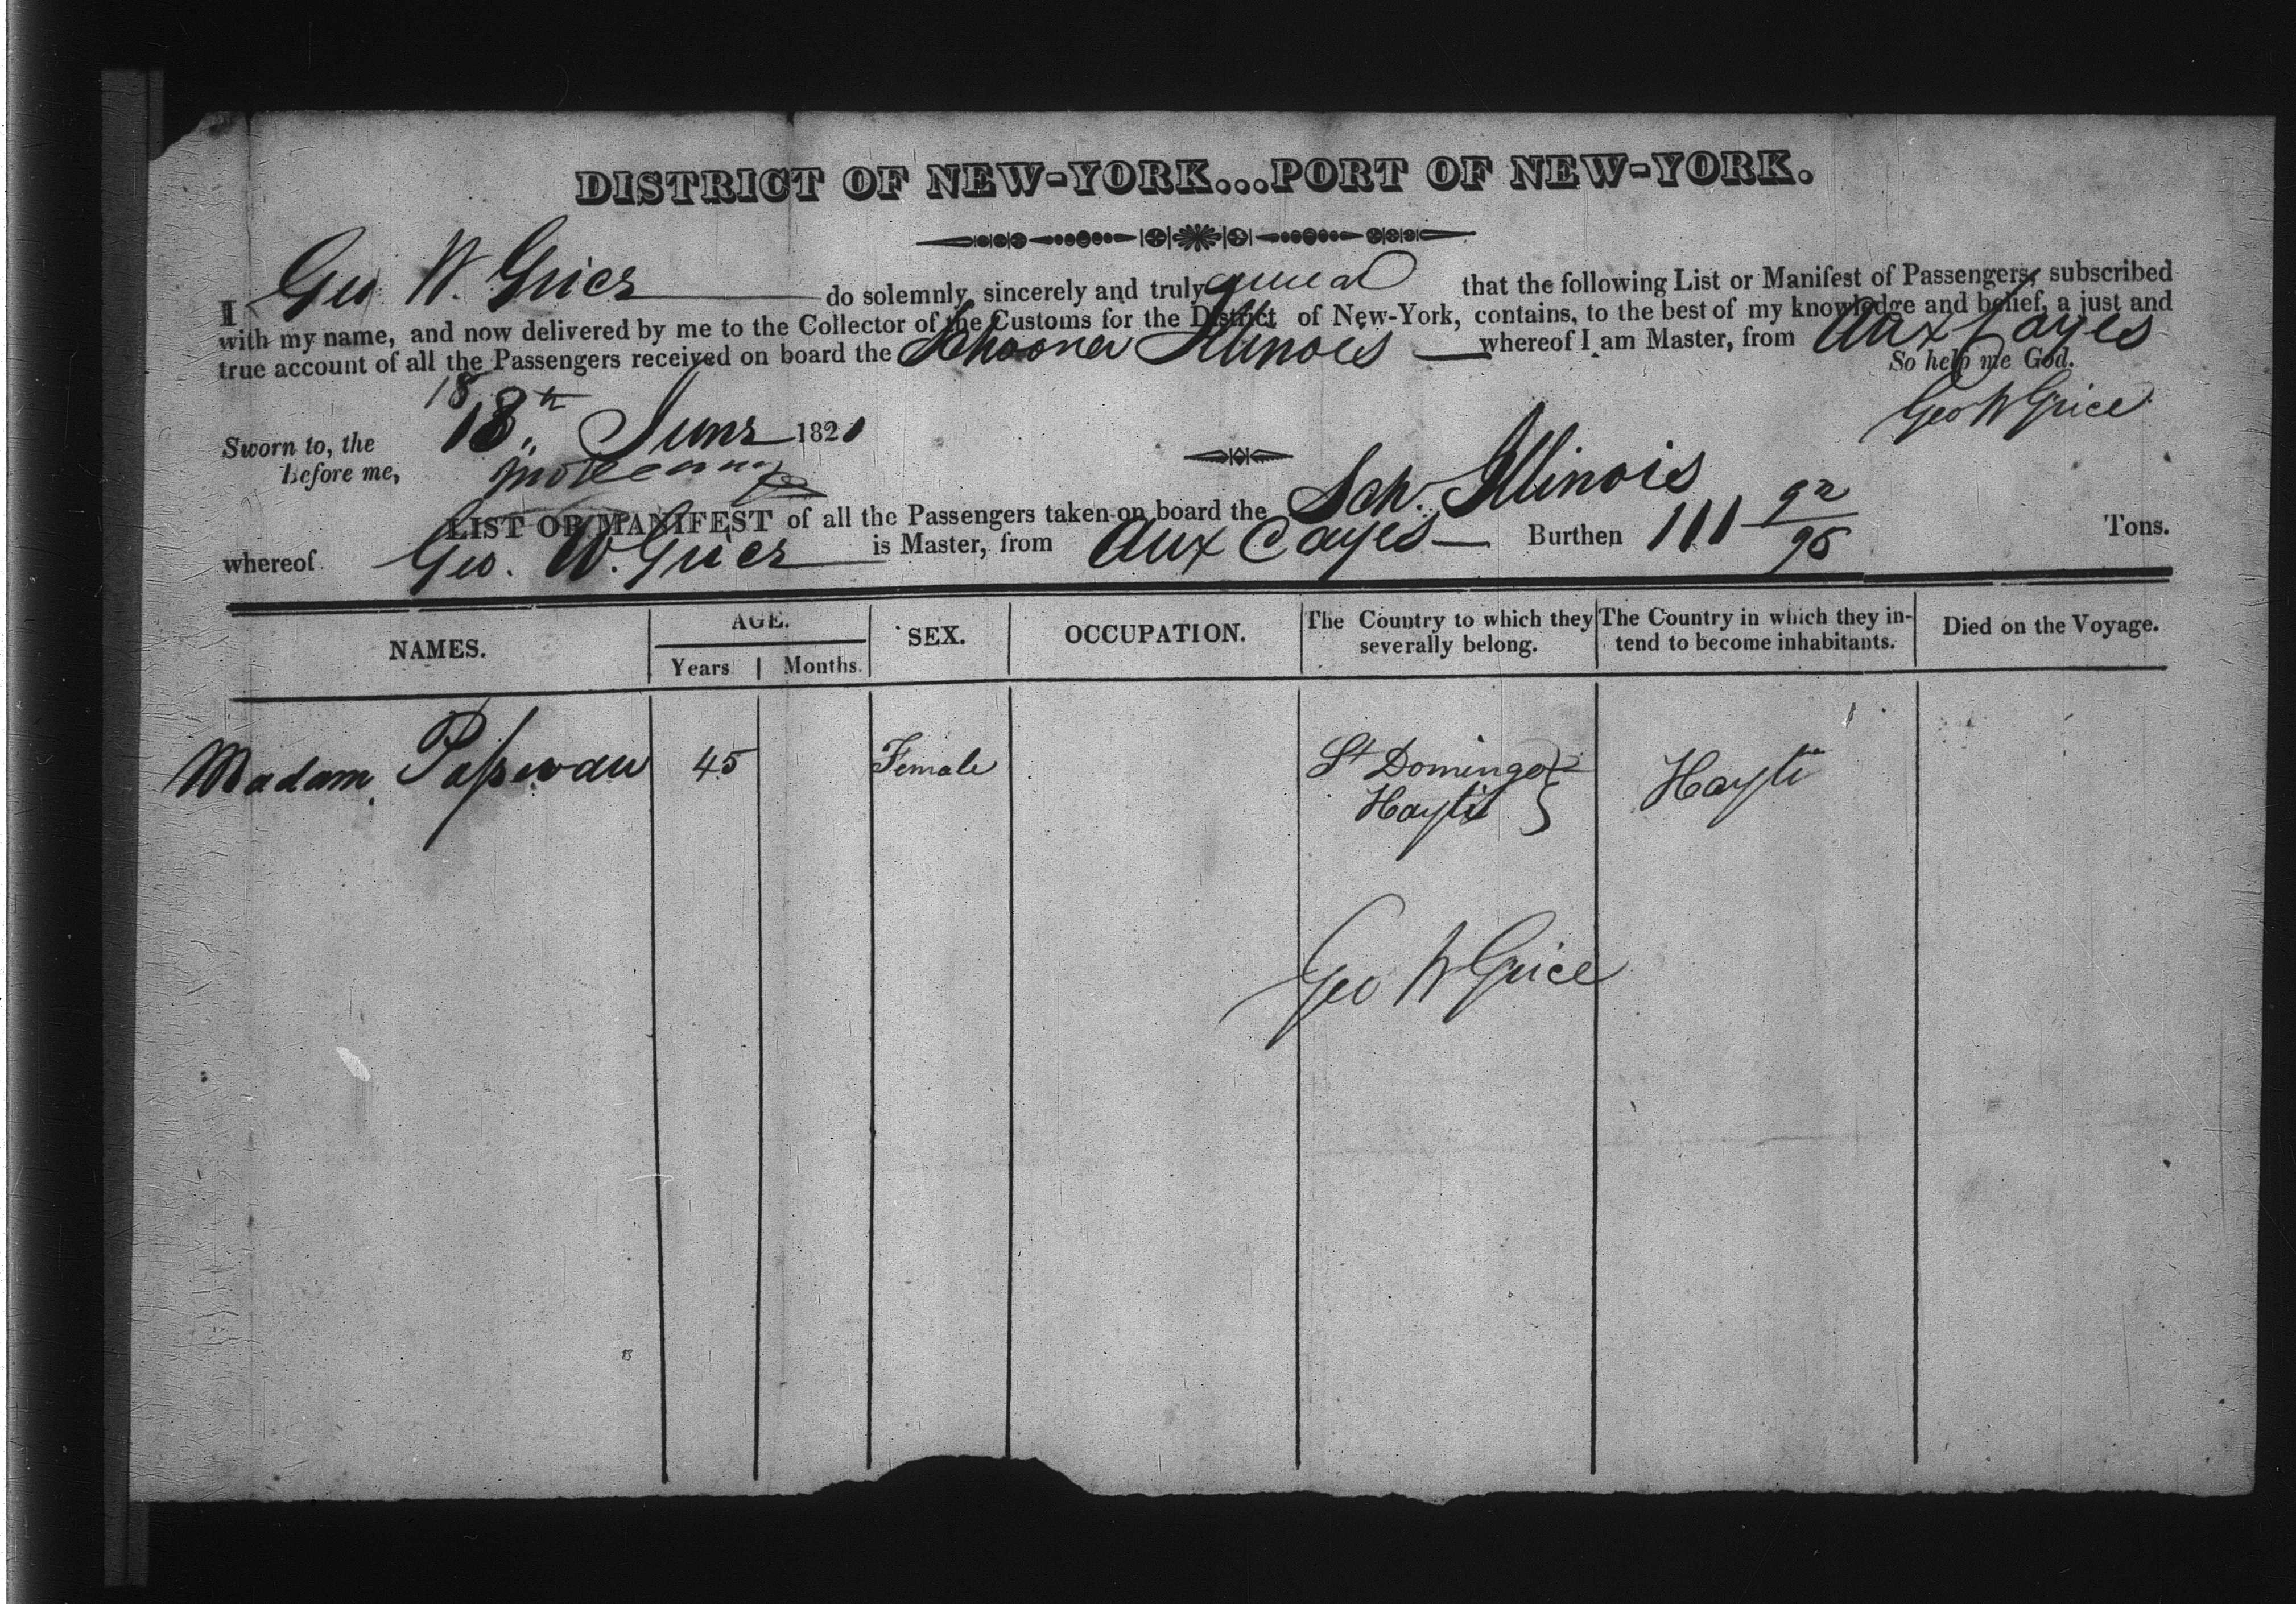 DISTRICT OF NEW-YORK...PORT OF NEW-YORK.
I Geo W. Grice do solemnly, sincerely and truly swear that the following List or Manifest of Passengers, subscribed
with my name, and now delivered by me to the Collector of the Customs for the District of New-York, contains, to the best of my knowledge and belief, a just and
true account of all the Passengers received on board the Schooner Illinois whereof I am Master, from Aux Cayes
So help me God.
Sworn to, the 18th June 1821
Geo W Grice
Before me,
LIST OR MANIFEST of all the Passengers taken on board the Sch. Illinois
whereof Geo. W. Grice is Master, from Aux Cayes Burthen 111 92/95 Tons.
NAMES. AGE. SEX. OCCUPATION. The Country to which they severally belong. The Country in which they intend to become inhabitants. Died on the Voyage.
Years Months.
Madam 45 Female St Domingo Hayti
Hayti
Geo W Grice